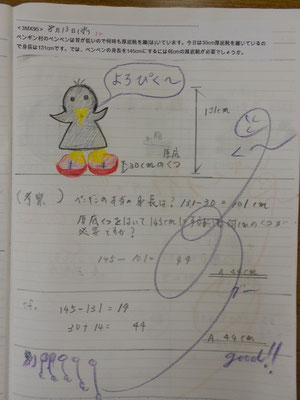 ペンギン村のペンペンは背が低いので何時も厚底靴を履(は)いています。今日は30cm厚底靴を履いているの
で身長は131cmです。では、ペンペンの身長を145cmにするには何cmの厚底靴が必要でしょうか。
よろぴく〜
131cm
厚底
30cmのくつ
(考察) ペンギンの本当の身長は? 131-30=101cm
厚底くつをはいて145cmに
何cmのくつが
必要ですか?
145-101= 44
A. 44cm
cf. 145-131=14
30+14= 44
A. 44cm
good!!